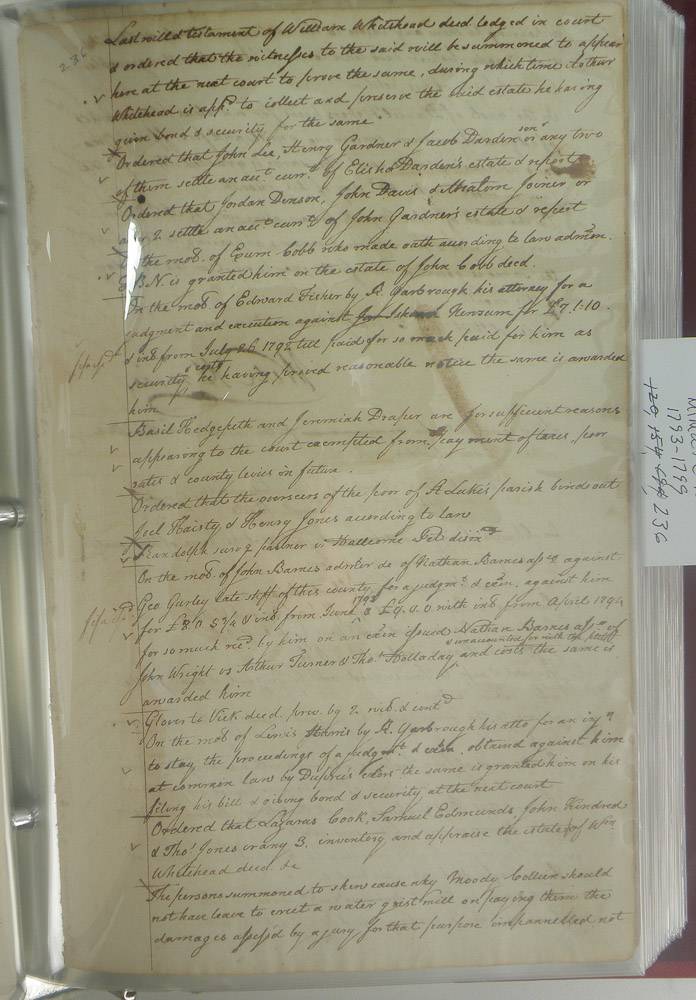 236
Last will & testament of William Whitehead decd lodged in court
& ordered that the witnesses to the said will be summoned to appear
here at the next court to prove the same, during which time Arthur
Whitehead is appd. to collect and preserve the said estate he having
given bond & security for the same.
Ordered that John Lee, Henry Gardner & Jacob Darden son or any two
of them settle an acct. currt. of Elisha Darden's estate & report
Ordered that Jordan Denson, John Davis & Joiner or
any 2 settle an acct. currt. of John Gardner's estate & report
On the mot. of Exum Cobb who made oath according to law admon.
D.B.N. is granted him on the estate of John Cobb decd.
On the mot. of Edward Fisher by Yarbrough his attorney for a
judgment and execution against Newsum for £7.1.10.
& int. from July 26 1792 till paid for so much paid for him as
security & costs he having proved reasonable notice the same is awarded
him
Basil Hedgepeth and Jeremiah Draper are for sufficient reasons
appearing to the court exempted from payment of taxes, poor
rates & county levies in future.
Ordered that the overseers of the poor of St Luke's parish binds out
Joel Haisty & Henry Jones according to law
Randolph surv. partner vs Pet. dism.d
On the mot. of John Barnes admr. de of Nathan Barnes asse. against
Geo Gurley late shff of this county for a judgmt. & exn. against him
for £8.0.5¼ & int. from June 1793 & £9.4.0 with int. from April 1794
for so much recd. by him on an exn issued Nathan Barnes asse. of
John Wright vs Arthur Turner & Thos. Holladay & unaccounted for with the plaintiff and costs the same is
awarded him
Glover to Vick deed. prov. by 2 wits. & contd
On the mot of Lewis Harris by Yarbrough his atto for an injn.
to stay the proceedings of a judgmt. & exn. obtained against him
at common law by exors the same is granted him on his
filing his bill & giving bond & security at the next court
Ordered that Lazarus Cook, Samuel Edmunds, John Kindred
& Thos. Jones or any 3. inventory and appraise the estate of Wm
Whitehead decd. &c
The persons summoned to shew cause why Moody should
not have leave to erect a water grist mill on paying them the
damages assess'd by a jury for that purpose impannelled not
1793-1799
236